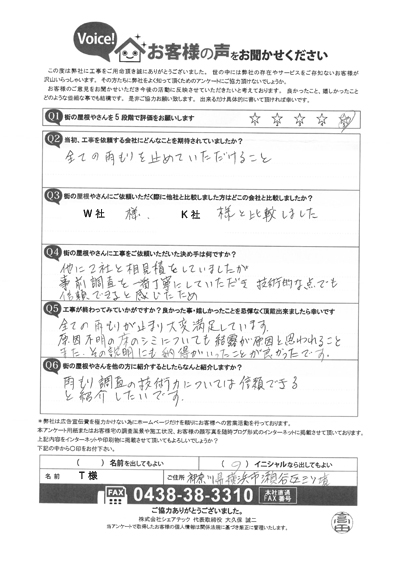 Voice!
お客様の声をお聞かせください
この度は弊社に工事をご用命頂き誠にありがとうございました。世の中には弊社の存在やサービスをご存知ないお客様が
沢山いらっしゃいます。その方たちに弊社をよく知って頂くためのアンケートにご協力頂けないでしょうか。
お客様のご意見をお聞かせいただき今後の活動に反映させていただきたいと考えております。良かったこと、嬉しかったこと
どのような些細な事でも結構です。是非ご協力お願い致します。出来るだけ具体的に書いて頂ければ幸いです。
Q1 街の屋根やさんを5段階で評価をお願いします ☆ ☆ ☆ ☆ ☆
Q2 当初、工事を依頼する会社にどんなことを期待されていましたか?
全ての雨もりを止めていただけること
Q3 街の屋根やさんにご依頼いただく際に他社と比較しました方はどこの会社と比較しましたか?
W社 様、 K社 様と比較しました
Q4 街の屋根やさんに工事をご依頼いただいた決め手は何ですか?
他に2社と相見積をしていましたが
事前調査を一番丁寧にしていただき 技術的な点でも
信頼できると感じたため
Q5 工事が終わってみていかがですか?良かった事・嬉しかったことを忌憚なく頂戴出来ましたら幸いです
全ての雨もりが止まり大変満足しています。
原因不明の床のシミについても結露が原因と思われること
また、その説明にも納得がいったことが良かったです。
Q6 街の屋根やさんを他の方に紹介するとしたらなんと紹介しますか?
雨もり調査の技術力については信頼できる
と紹介したいです。
*弊社は広告宣伝費を極力かけない為にホームページだけを頼りにお客様への営業活動を行っております。
本アンケート用紙またはお客様宅の調査風景や施工状況、お客様の顔写真を随時ブログ形式のインターネットに掲載させて頂いております。
上記内容をインターネットや印刷物に掲載させて頂いてもよろしいでしょうか?
下記の中から〇印をお付下さい。
( )名前を出してもよい ( )イニシャルなら出してもよい
名前 T様 ご住所 神奈川県横浜市瀬谷区三ツ境
FAX 0438-38-3310 本社直通 FAX番号
ご協力ありがとうございました。
株式会社シェアテック 代表取締役 大久保 誠二
当アンケートで取得したお客様の個人情報は関係法規に基づき厳正に管理いたします。